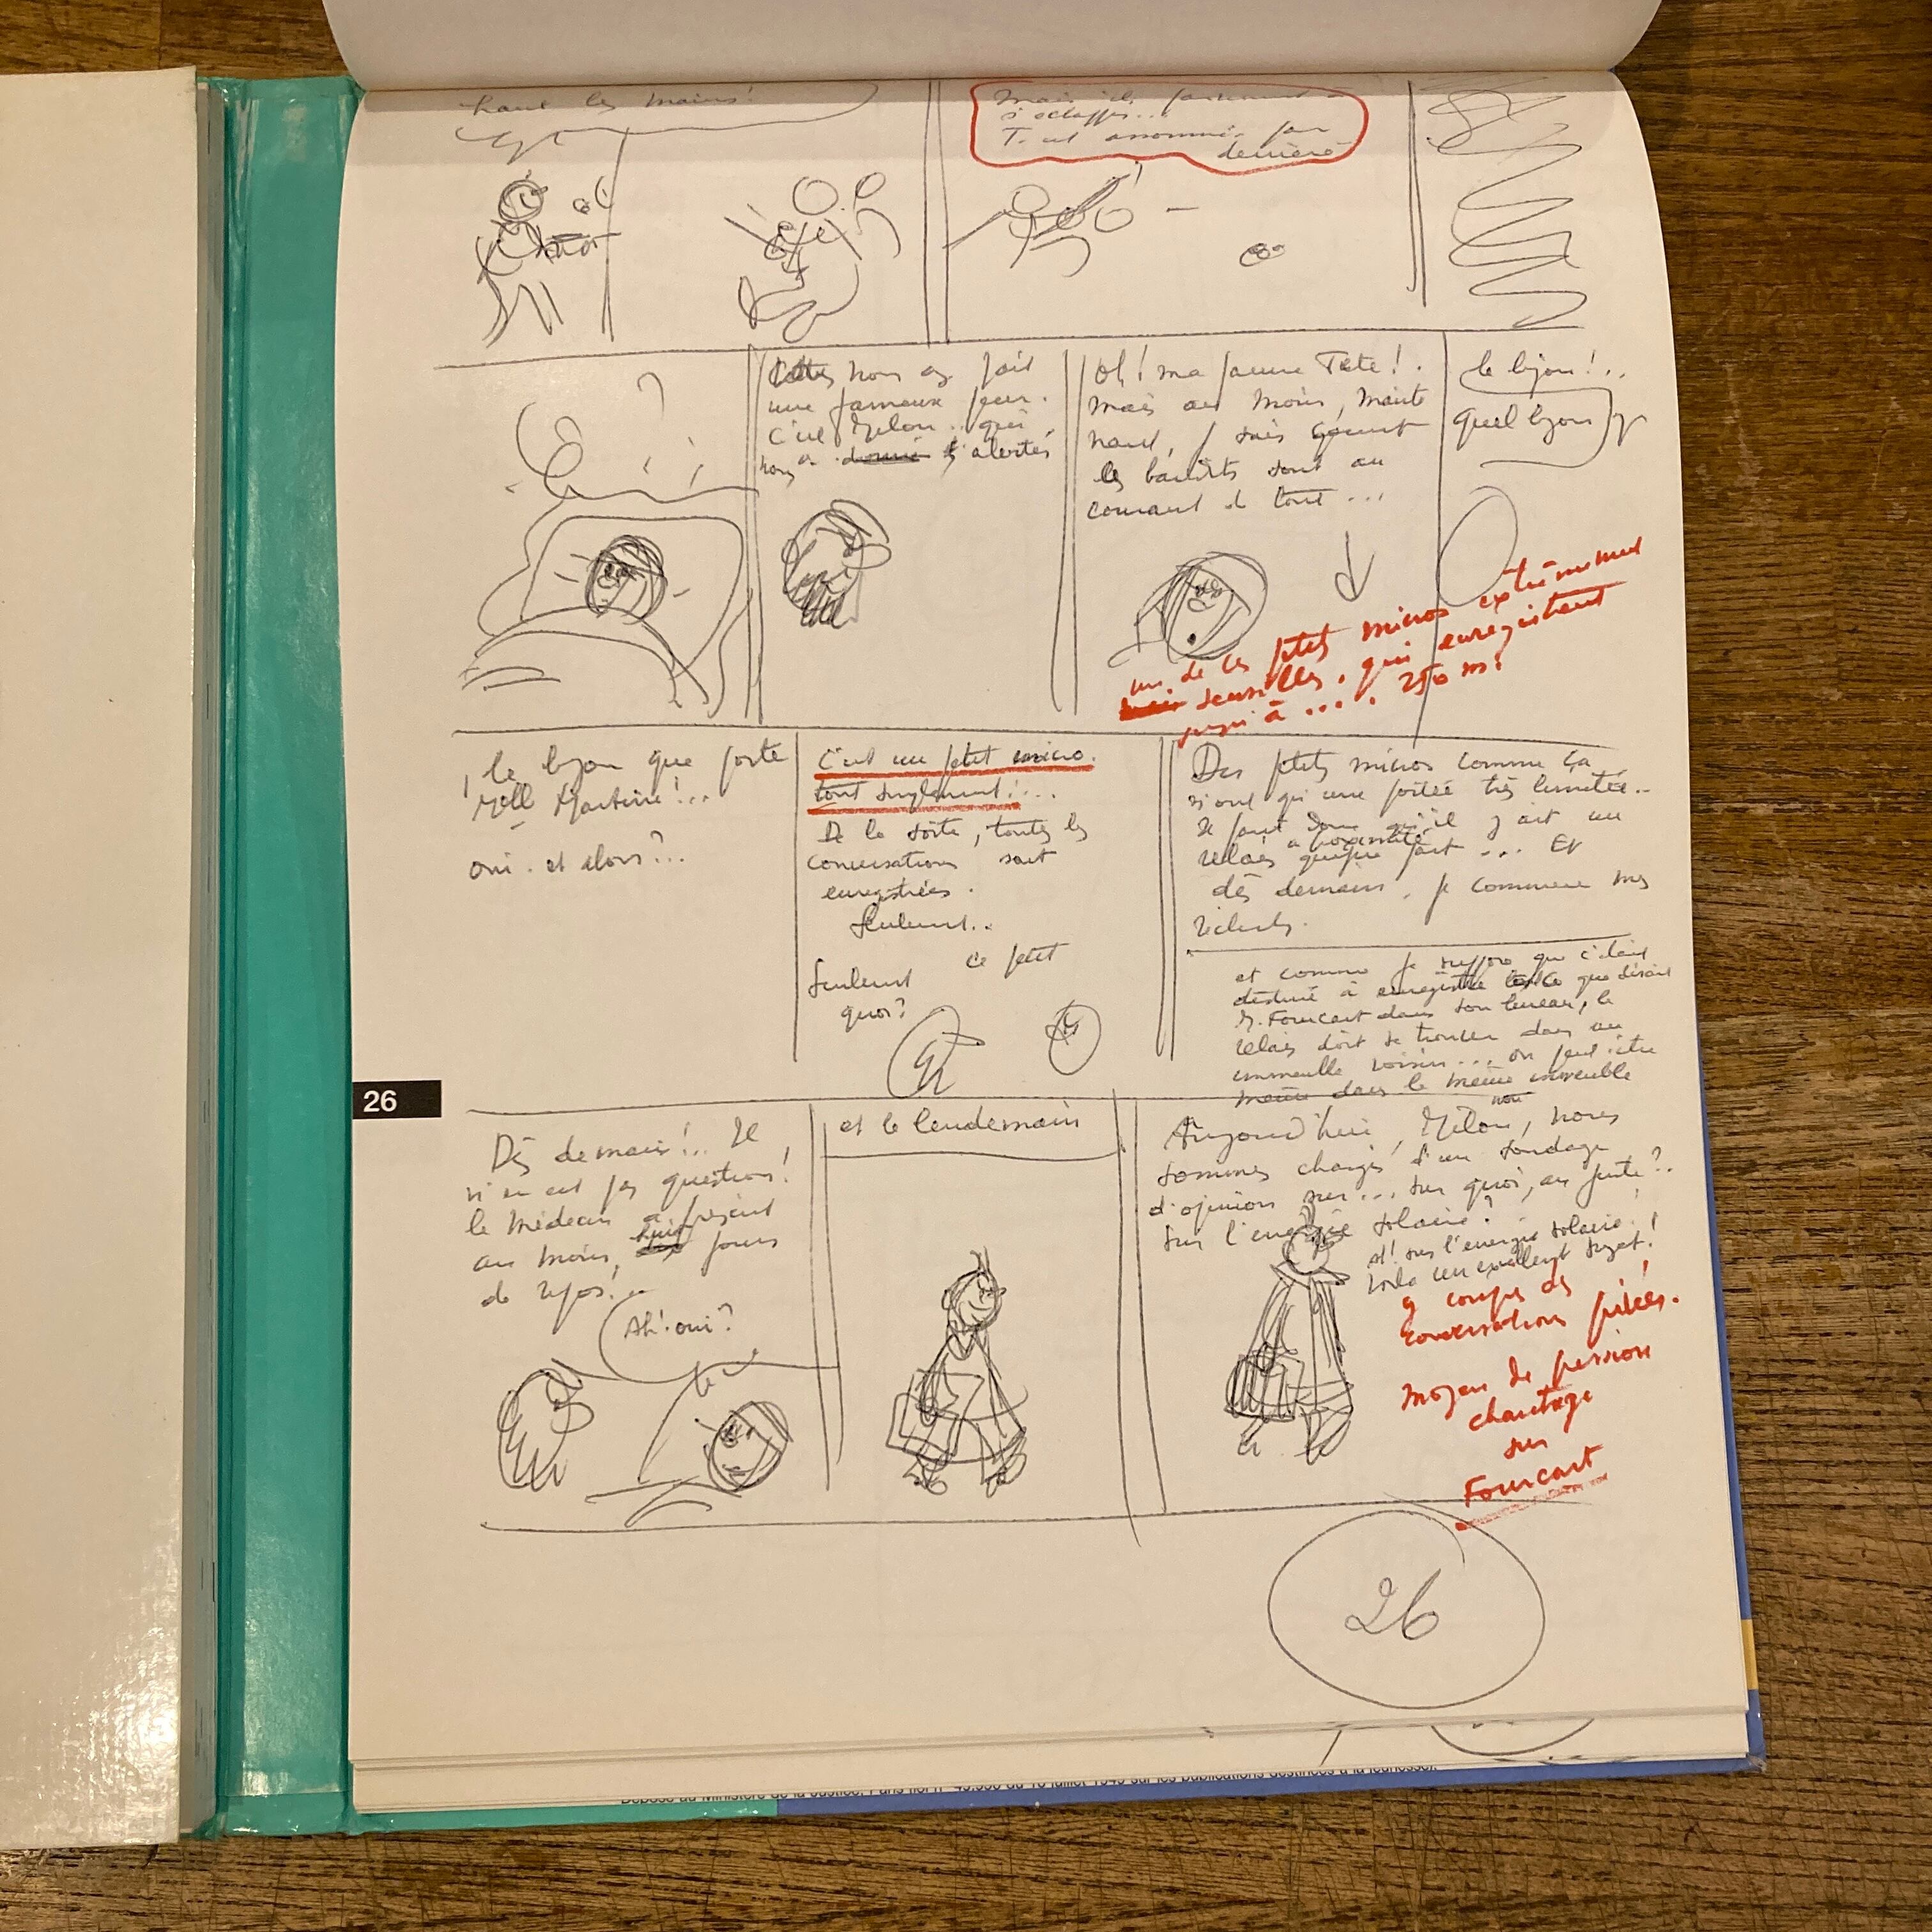 haut les mains!
Mais ils parviennent à
s'échapper...
T. est assommé par
derrière
?
nous as fait
une fameuse peur.
C'est Milou.. qui
nous a donné alertés
Oh! ma pauvre Tête!..
Mais au moins, mainte
nant, je sais
les bandits sont au
courant de tout...
le bijou!..
quel bijou
un de ces petits micros extrêmement
sensibles, qui enregistrent
jusqu'à .... 250 m!
le bijou que porte
Mlle Martine!...
oui. et alors?...
C'est un petit micro.
tout simplement!...
De la sorte, toutes les
conversations sont
enregistrées.
Seulement..
ce petit
Seulement
quoi?
Des petits micros comme ça
n'ont qu'une portée très limitée..
Il faut donc qu'il y ait un
à proximité
relais quelque part ... Et
dès demain, je commence mes
recherches.
et comme je suppose que c'était
destiné à enregistrer ce que disait
M. Fourcart dans son bureau, le
relais doit se trouver dans un
immeuble voisin... ou peut-être
même dans le même immeuble
26
Dès demain!.. Il
n'en est pas question!
le médecin a prescrit
au moins, huit jours
de repos!..
Ah! oui?
et le lendemain
Aujourd'hui, Milou, nous
sommes chargés d'un sondage
d'opinion sur... sur quoi, au juste?..
Sur l'énergie solaire?
Ah! sur l'énergie solaire!
Voilà un excellent sujet!
y compris des
conversations privées.
Moyen de pression
chantage
sur
Fourcart
26
Déposé au Ministère de la Justice, Paris loi n° 49.956 du 16 juillet 1949 sur les publications destinées à la jeunesse).